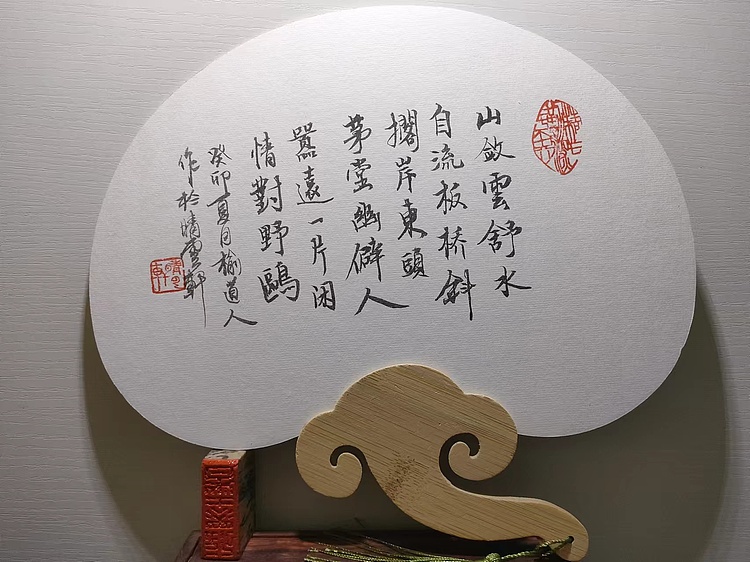 山敛雲舒水
自流板桥斜
搁岸東頭
茅堂幽僻人
嚣遠一片闲
情對野鷗
癸卯夏日榆道人
作於晴雲軒